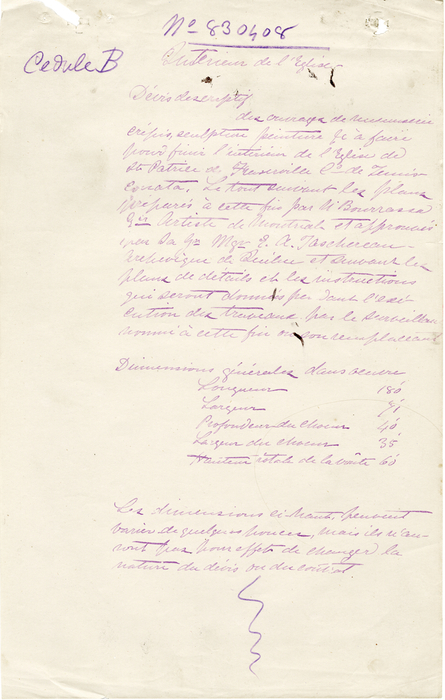 No 830408
Cedule B
Interieur de l'Eglise
Dévis descriptif
des ouvrages de menuiserie
crépis, sculpture peinture &c à faire
pour finir l'interieur de l'Eglise de
St Patrice de Fraserville Cté de Témis-
couata. Le tout suivant les plans
préparés à cette fin par N. Bourrassa
Artiste de Montréal et approuvés
par Sa Gr Mgr E. A. Taschereau
Archevêque de Québec et suivant les
plans de détails et les instructions
qui seront données pendant l'exé-
cution des travaux par le surveillant
nommé à cette fin ou son remplaçant
Dimensions générales dans oeuvre
Longueur 180
Largeur 71
Profondeur du choeur 40
Largeur du choeur 35
Hauteur totale de la voûte 60
Les dimensions ci-haut, peuvent
varier de quelques pouces, mais ils n'au-
ront pas pour effet de changer la
nature du devis ou du contrat.